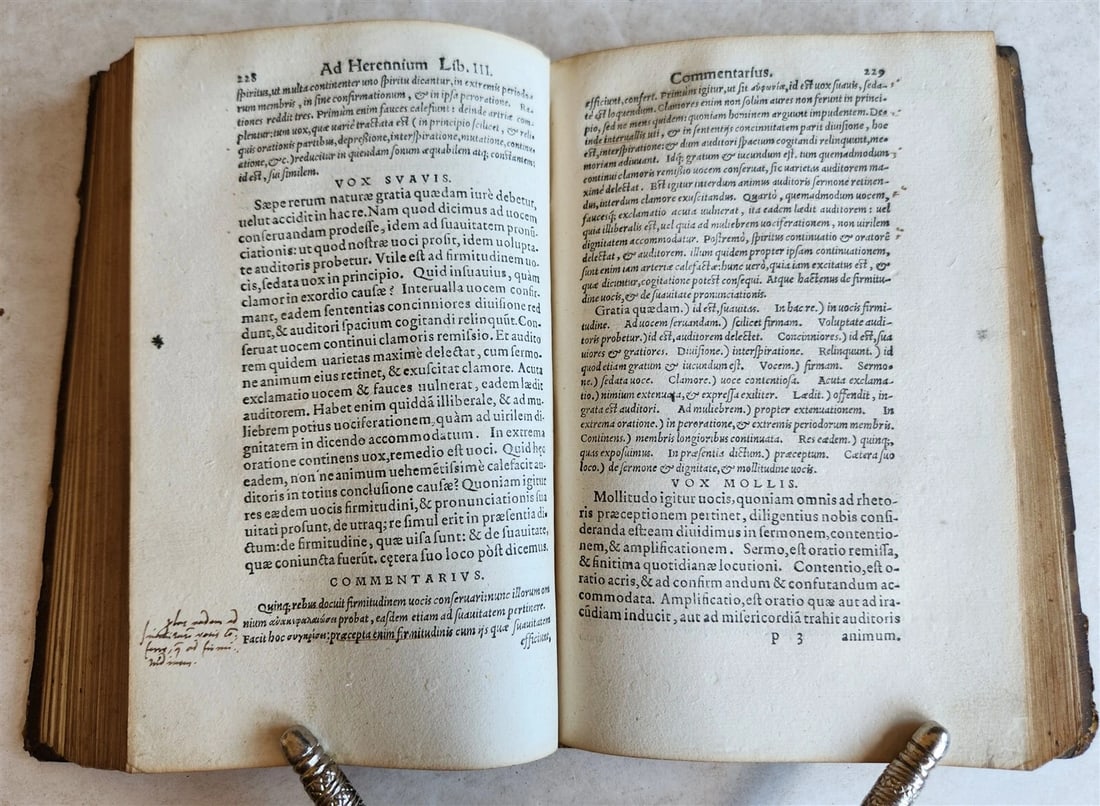 228
Ad Herennium Lib. III.
ſpiritus, ut multa continenter uno ſpiritu dicantur, in extremis periodo-
rum membris, in fine confirmationum, & in ipſa peroratione. Ra-
tiones reddit tres. Primum enim fauces calefiunt: deinde artriæ com-
plentur: tum uox, quæ uariè tractata eſt (in principio ſcilicet, & reli-
quis orationis partibus, depreſſione, interſpiratione, mutatione, continu-
atione, &c.) reducitur in quendam ſonum æquabilem atq; conſtantem:
id eſt, ſui ſimilem.
VOX SVAVIS.
Sæpe rerum naturæ gratia quædam iurè debetur,
uelut accidit in hac re. Nam quod dicimus ad uocem
conſeruandam prodeſſe, idem ad ſuauitatem pronū-
ciationis: ut quod noſtræ uoci profit, idem uolupta-
te auditoris probetur. Vtile eſt ad firmitudinem uo-
cis, ſedata uox in principio. Quid inſuauius, quàm
clamor in exordio cauſæ? Interualla uocem confir-
mant, eadem ſententias concinniores diuiſione red
dunt, & auditori ſpacium cogitandi relinquūt. Con-
ſeruat uocem continui clamoris remiſſio. Et audito
rem quidem uarietas maximè delectat, cum ſermo-
ne animum eius retinet, & exuſcitat clamore. Acuta
exclamatio uocem & fauces uulnerat, eadem lædit
auditorem. Habet enim quiddā illiberale, & ad mu-
liebrem potius uociferationem, quàm ad uirilem di-
gnitatem in dicendo accommodatum. In extrema
oratione continens uox, remedio eſt uoci. Quid hęc
eadem, non'ne animum uehemētiſſimè calefacit au-
ditoris in totius concluſione cauſæ? Quoniam igitur
res eædem uocis firmitudini, & pronunciationis ſua
uitati proſunt, de utraq; re ſimul erit in præſentia di-
ctum: de firmitudine, quæ uiſa ſunt: & de ſuauitate,
quæ coniuncta fuerūt. cętera ſuo loco pòſt dicemus.
COMMENTARIVS.
Quinq; rebus docuit firmitudinem uocis conſeruari: nunc illorum om
nium probat, eaſdem etiam ad ſuauitatem pertinere.
Facit hoc præcepta enim firmitudinis cum ijs quæ ſuauitatem
efficiunt,
Commentarius.
229
efficiunt, confert. Primum igitur, ut ſit id eſt uox ſuauis, ſeda-
tè eſt loquendum. Clamores enim non ſolùm aures non ferunt in princi-
pio, ſed ne mens quidem: quoniam hominem arguunt impudentem. De-
inde interuallis uti, & in ſententijs concinnitatem parit diuiſione, hoc
eſt, interſpiratione: & dum auditori ſpacium cogitandi relinquunt, me-
moriam adiuuant. Idq; gratum & iucundum eſt. tum quemadmodum
continui clamoris remiſſio uocem conſeruat, ſic uarietas auditorem ma-
ximè delectat. Eſt igitur interdum animus auditoris ſermone retinen-
dus, interdum clamore exuſcitandus. Quartò, quemadmodum uocem,
fauceſq; exclamatio acuta uulnerat, ita eadem lædit auditorem: uel
quia illiberalis eſt, uel quia ad muliebrem uociferationem, non uirilem
dignitatem accommodatur. Poſtremò, ſpiritus continuatio & oratorē
delectat, & auditorem. illum quidem propter ipſam continuationem,
ſunt enim iam arteriæ calefactæ: hunc uerò, quia iam excitatus eſt, &
quæ dicuntur, cogitatione poteſt conſequi. Atque hactenus de firmitu-
dine uocis, & de ſuauitate pronunciationis.
Gratia quædam.) id eſt, ſuauitas. In hac re.) in uocis firmi-
tudine. Ad uocem ſeruandam.) ſcilicet firmam. Voluptate audi-
toris probetur.) id eſt, auditorem delectet. Concinniores.) id eſt, ſua
uiores & gratiores. Diuiſione.) interſpiratione. Relinquunt.) id
quod etiam gratum & iucundum eſt. Vocem.) firmam. Sermo-
ne.) ſedata uoce. Clamore.) uoce contentioſa. Acuta exclama-
tio.) nimium extenuata, & expreſſa exiliter. Lædit.) offendit, in-
grata eſt auditori. Ad muliebrem.) propter extenuationem. In
extrema oratione.) in peroratione, & extremis periodorum membris.
Continens.) membris longioribus continuata. Res eædem.) quinq;,
quas expoſuimus. In præſentia dictum.) præceptum. Cætera ſuo
loco.) de ſermone & dignitate, & mollitudine uocis.
VOX MOLLIS.
Mollitudo igitur uocis, quoniam omnis ad rheto-
ris præceptionem pertinet, diligentius nobis conſi-
deranda eſt: eam diuidimus in ſermonem, contentio-
nem, & amplificationem. Sermo, eſt oratio remiſſa,
& finitima quotidianæ locutioni. Contentio, eſt o-
ratio acris, & ad confirmandum & confutandum ac-
commodata. Amplificatio, eſt oratio quæ aut ad ira-
cūdiam inducit, aut ad miſericordiā trahit auditoris
P 3
animum.